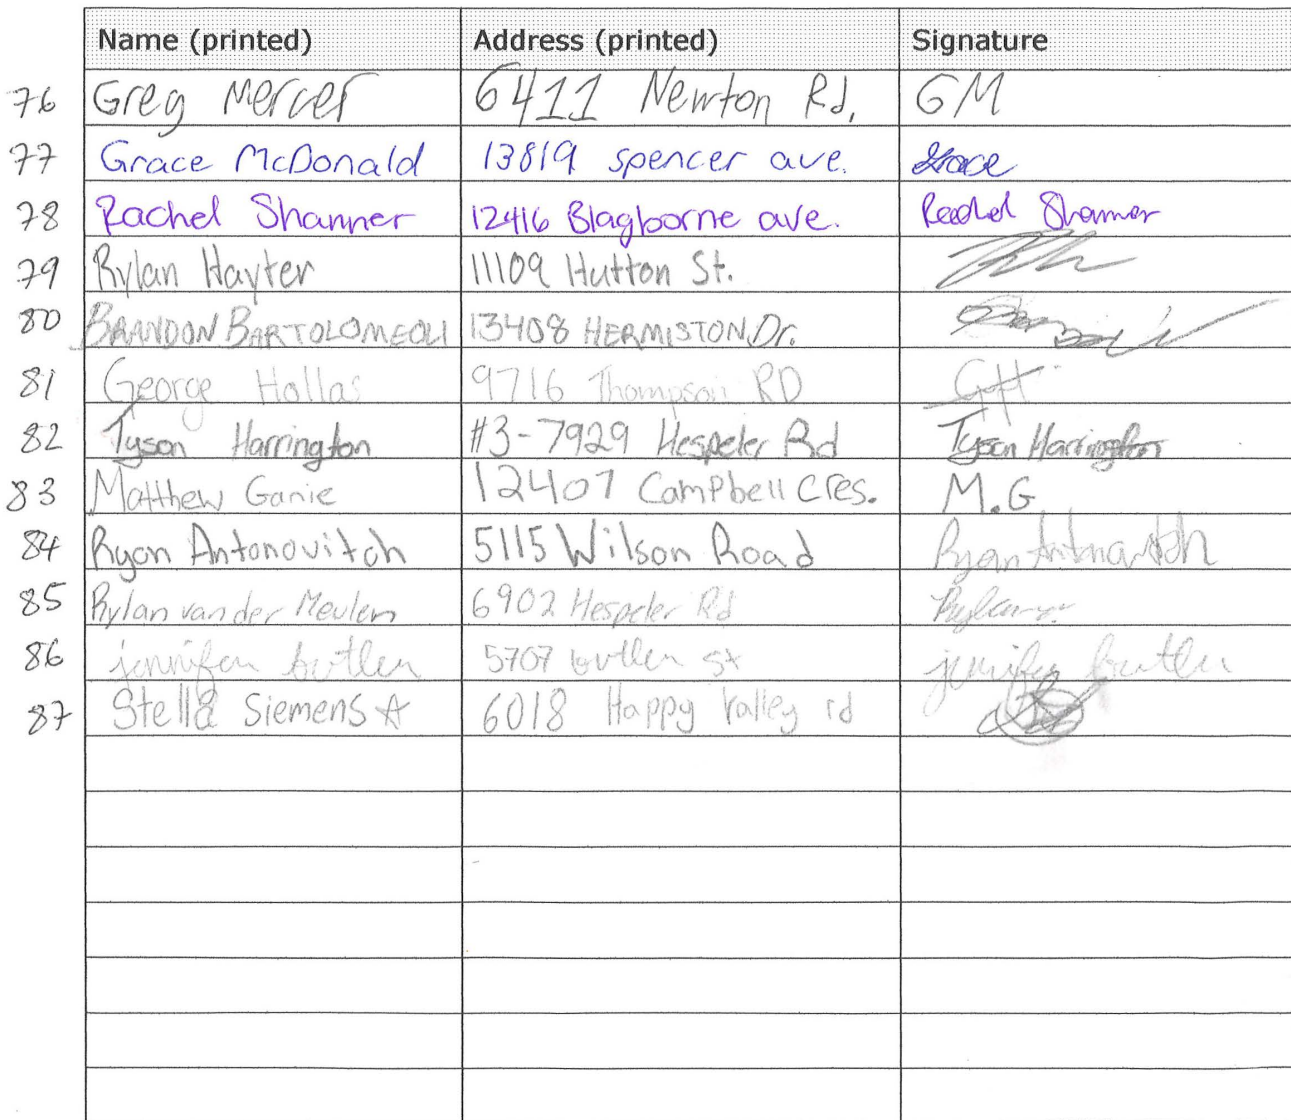 Name (printed) Address (printed) Signature
76 Greg Mercer 6411 Newton Rd. GM
77 Grace McDonald 13819 spencer ave. Grace
78 Rachel Shanner 12416 Blagborne ave. Rachel Shanner
79 Rylan Hayter 11109 Hutton St.
80 BRANDON BARTOLOMEOLI 13408 HERMISTON Dr.
81 George Hollas 9716 Thompson RD GH
82 Tyson Harrington #3-7929 Hespeler Rd Tyson Harrington
83 Matthew Ganie 12407 Campbell cres. M.G
84 Ryan Antonovitch 5115 Wilson Road Ryan Antonovitch
85 Rylan van der Meulen 6902 Hespeler Rd Rylan
86 jennifer butler 5707 butler st jennifer butler
87 Stella Siemens 6018 Happy Valley rd